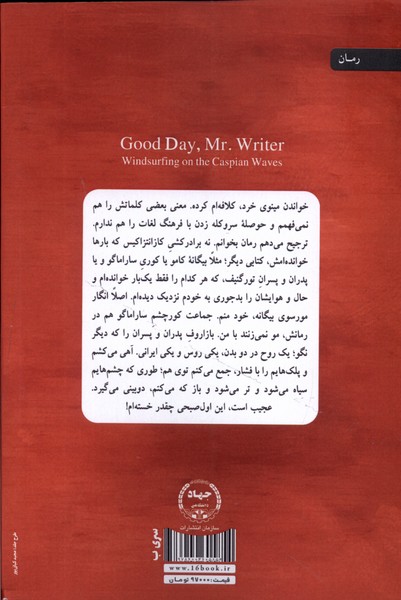 رمـان
Good Day, Mr. Writer
Windsurfing on the Caspian Waves
خواندن مینوی خرد، کلافه‌ام کرده. معنی بعضی کلماتش را هم
نمی‌فهمم و حوصلهٔ سروکله زدن با فرهنگ لغات را هم ندارم.
ترجیح می‌دهم رمان بخوانم. نه برادرکشیِ کازانتزاکیس که بارها
خوانده‌امش، کتابی دیگر؛ مثلاً بیگانهٔ کامو یا کوریِ ساراماگو و یا
پدران و پسرانِ تورگنیف، که هر کدام را فقط یک‌بار خوانده‌ام و
حال و هوایشان را بدجوری به خودم نزدیک دیده‌ام. اصلاً انگار
مورسوی بیگانه، خود منم. جماعت کورچشمِ ساراماگو هم در
رمانش، مو نمی‌زنند با من. بازاروفِ پدران و پسران را که دیگر
نگو: یک روح در دو بدن، یکی روس و یکی ایرانی. آهی می‌کشم
و پلک‌هایم را با فشار، جمع می‌کنم توی هم؛ طوری که چشم‌هایم
سیاه می‌شود و تر می‌شود و باز که می‌کنم، دوبینی می‌گیرد.
عجیب است، این اول‌صبحی چقدر خسته‌ام!
جهاد
دانشگاهی
سازمان انتشارات
سری ب
www.16book.ir
قیمت: ۹۷۰۰۰ تومان